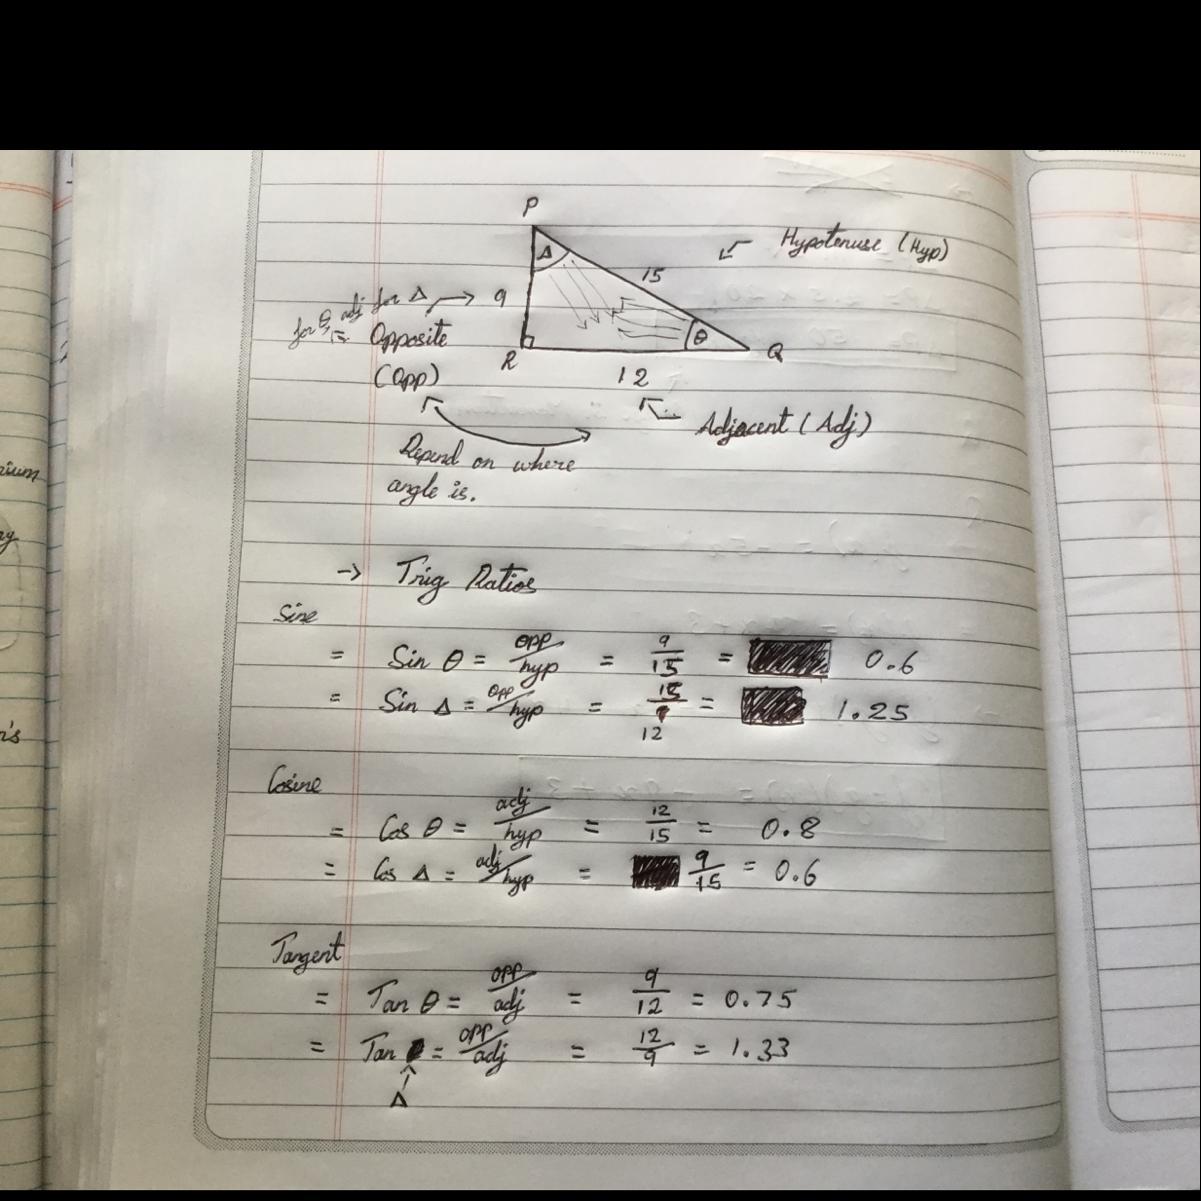 P
Hypotenuse (Hyp)
Δ
15
for θ, adj for Δ
9
= Opposite
θ
R
Q
(Opp)
12
Adjacent (Adj)
Depend on where
angle is.
nium
→ Trig Ratios
Sine
= Sin θ = opp/hyp = 9/15 = 0.6
= Sin Δ = opp/hyp = 15/9 = 1.25
12
Cosine
= Cos θ = adj/hyp = 12/15 = 0.8
= Cos Δ = adj/hyp = 9/15 = 0.6
Tangent
= Tan θ = opp/adj = 9/12 = 0.75
= Tan = opp/adj = 12/9 = 1.33
Δ